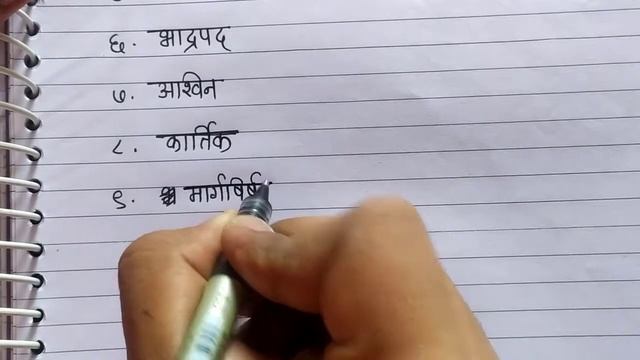 ६. भाद्रपद
७. आश्विन
८. कार्तिक
९. मार्गषिर्ष